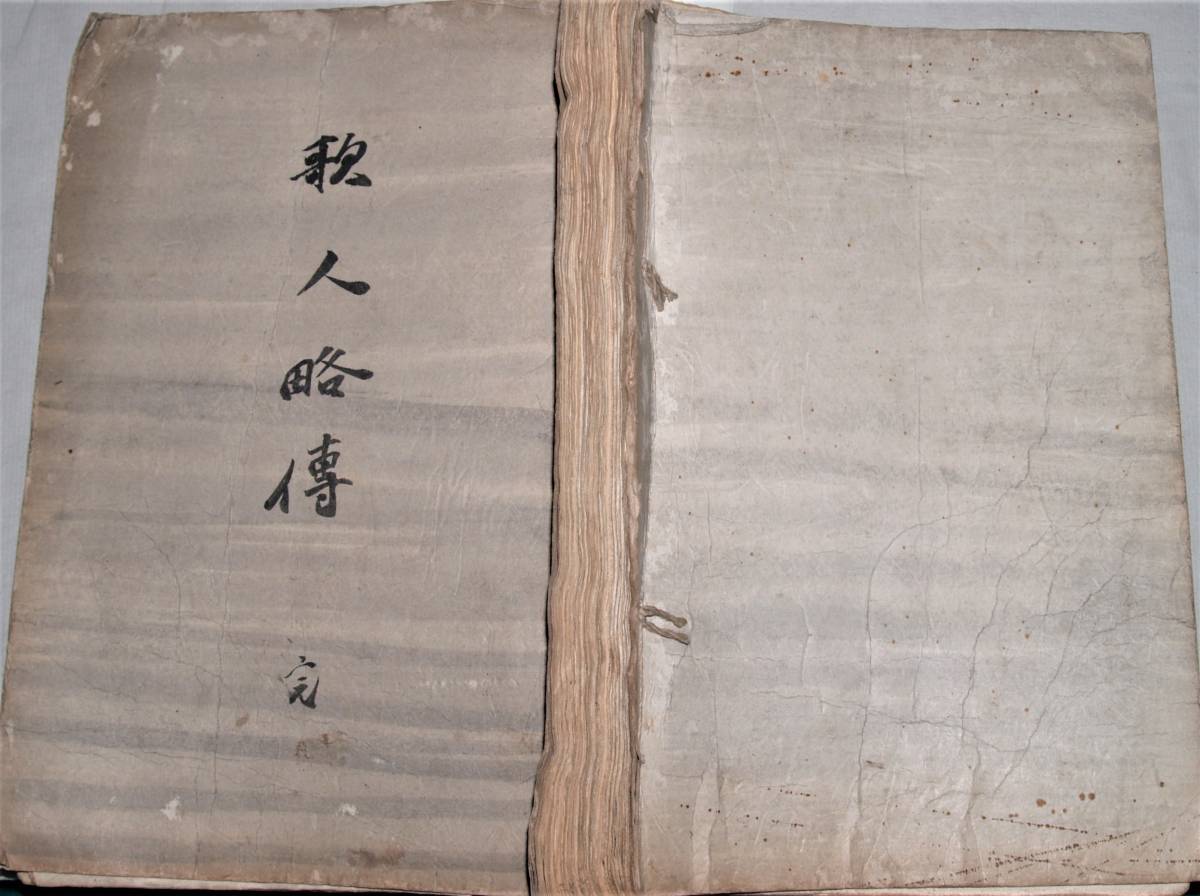 歌人略傳
完